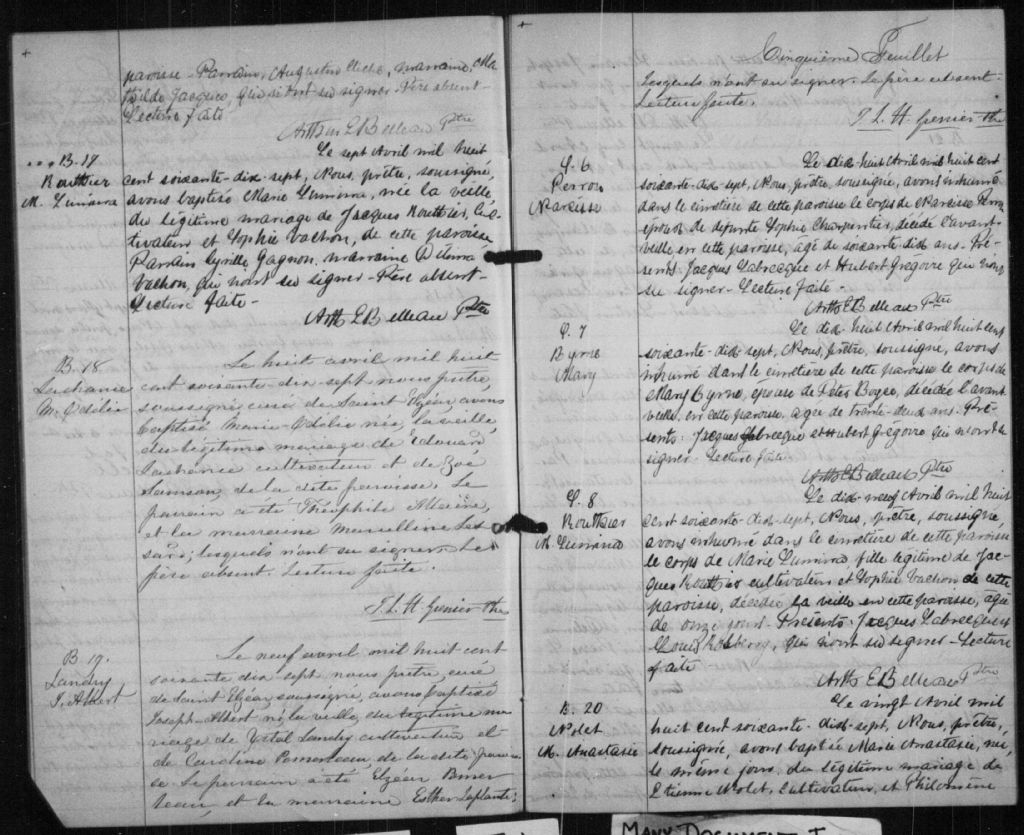 paroisse - Parrain, Augustin Cliche, marraine, Ma
thilde Jacques, qui n'ont su signer. Père absent -
Lecture faite
Arthur E Belleau Ptre
B. 17
Routhier
M. Lumina
Le sept Avril mil huit
cent soixante-dix-sept, Nous, prêtre, soussigné,
avons baptisé Marie Lumina, née la veille
du légitime mariage de Jacques Routhier, Cul
tivateur et Sophie Vachon, de cette paroisse
Parrain Cyrille Gagnon, marraine Adélina
Vachon, qui n'ont su signer - Père absent -
Lecture faite -
Arth E Belleau Ptre
B. 18
Lachance
M. Odélie
Le huit avril mil huit
cent soixante-dix-sept nous prêtre,
soussigné curé de Saint Elzéar, avons
baptisé Marie-Odélie née, la veille,
du légitime mariage de Edouard
Lachance cultivateur et de Zoé
Samson, de la dite paroisse. Le
parrain a été Théophile
et la marraine Marcelline Les
sard; lesquels n'ont su signer. Le
père absent. Lecture faite.
J. L. H. Grenier ptre
B. 19.
Landry
J. Albert
Le neuf avril mil huit cent
soixante dix-sept nous prêtre, curé
de Saint Elzéar soussigné, avons baptisé
Joseph-Albert né la veille, du légitime ma
riage de Vital Landry cultivateur et
de Caroline Pomerleau, de la dite parois
se. Le parrain a été Elzéar
leau, et la marraine Esther Laplante;
Cinquième Feuillet
lesquels n'ont su signer. Le père absent.
Lecture faite.
J. L. H. Grenier ptre
S. 6
Perron
Narcisse
Le dix huit Avril mil huit cent
soixante-dix-sept, Nous, prêtre, soussigné, avons inhumé
dans le cimetière de cette paroisse le corps de Narcisse Perron
époux de défunte Sophie Charpentier, décédé l'avant
veille en cette paroisse, agé de soixante dix ans - Pré-
sents: Jacques Labrecque et Hubert Grégoire qui n'ont
su signer - Lecture faite -
Arth E Belleau Ptre
S. 7
Byrne
Mary
Le dix huit Avril mil huit cent
soixante-dix sept, Nous, prêtre, soussigné, avons
inhumé dans le cimetière de cette paroisse le corps de
Mary Byrne, épouse de Peter Boyce, décédée l'avant
veille, en cette paroisse, agée de trente-deux ans. Pré-
sents: Jacques Labrecque et Hubert Grégoire qui n'ont su
signer - Lecture faite -
Arth E Belleau Ptre
S. 8
Routhier
M. Lumina
Le dix-neuf Avril mil huit
cent soixante-dix-sept, Nous, prêtre, soussigné,
avons inhumé dans le cimetière de cette paroisse
le corps de Marie Lumina fille légitime de Jac-
ques Routhier cultivateur et Sophie Vachon de cette
paroisse, décédée la veille en cette paroisse, agée
de onze jours - Présents - Jacques Labrecque et
Louis, qui n'ont su signer - Lecture
faite
Arth E Belleau Ptre
B. 20
Nolet
M. Anastasie
Le vingt Avril mil
huit cent soixante-dix-sept, Nous, prêtre,
soussigné, avons baptisé Marie Anastasie, née
le même jour, du légitime mariage de
Etienne Nolet, cultivateur, et Philomène
MANY DOCUMENT I